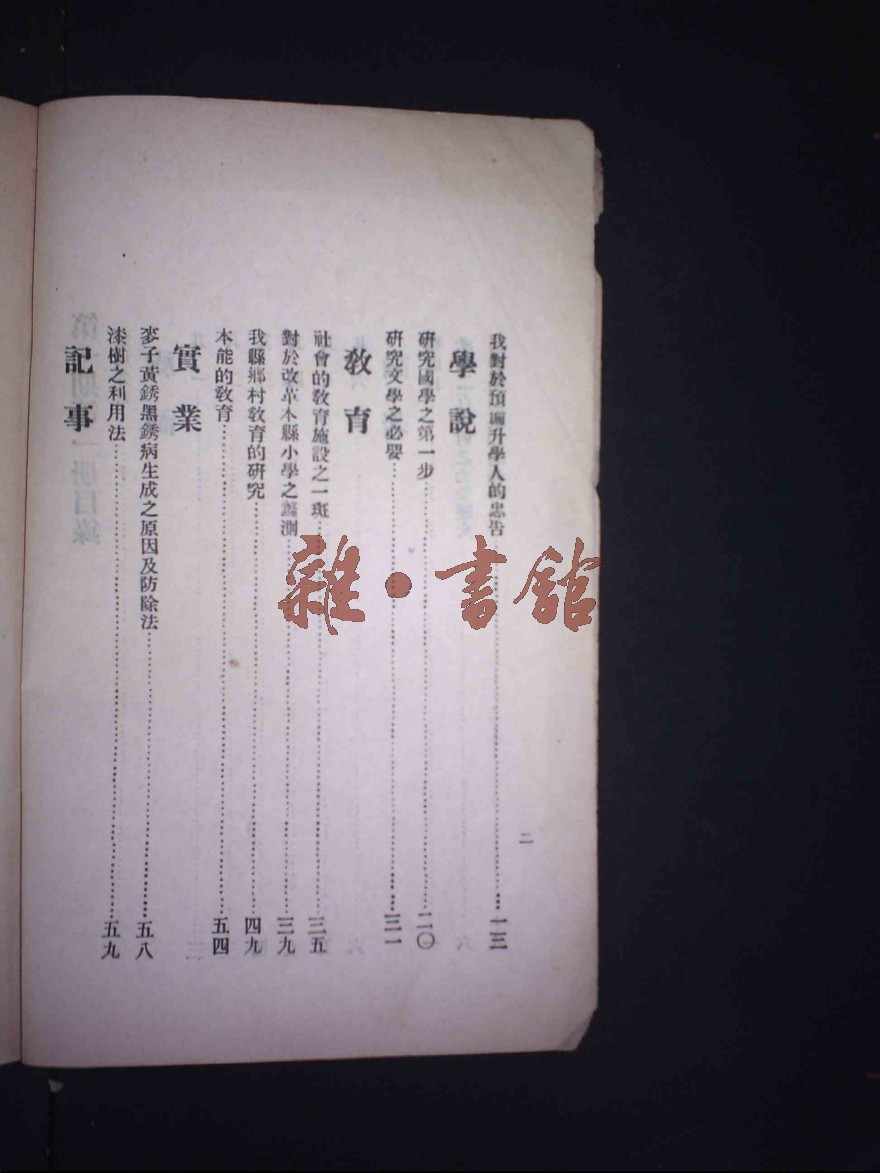 二
我對於預備升學人的忠告 一三
學說
研究國學之第一步 二〇
研究文學之必要 三一
教育
社會的教育施設之一斑 三五
對於改革本縣小學之蠡測 三九
我縣鄉村教育的研究 四九
本能的教育 五四
實業
麥子黃銹黑銹病生成之原因及防除法 五八
漆樹之利用法 五九
記事
雜·書館